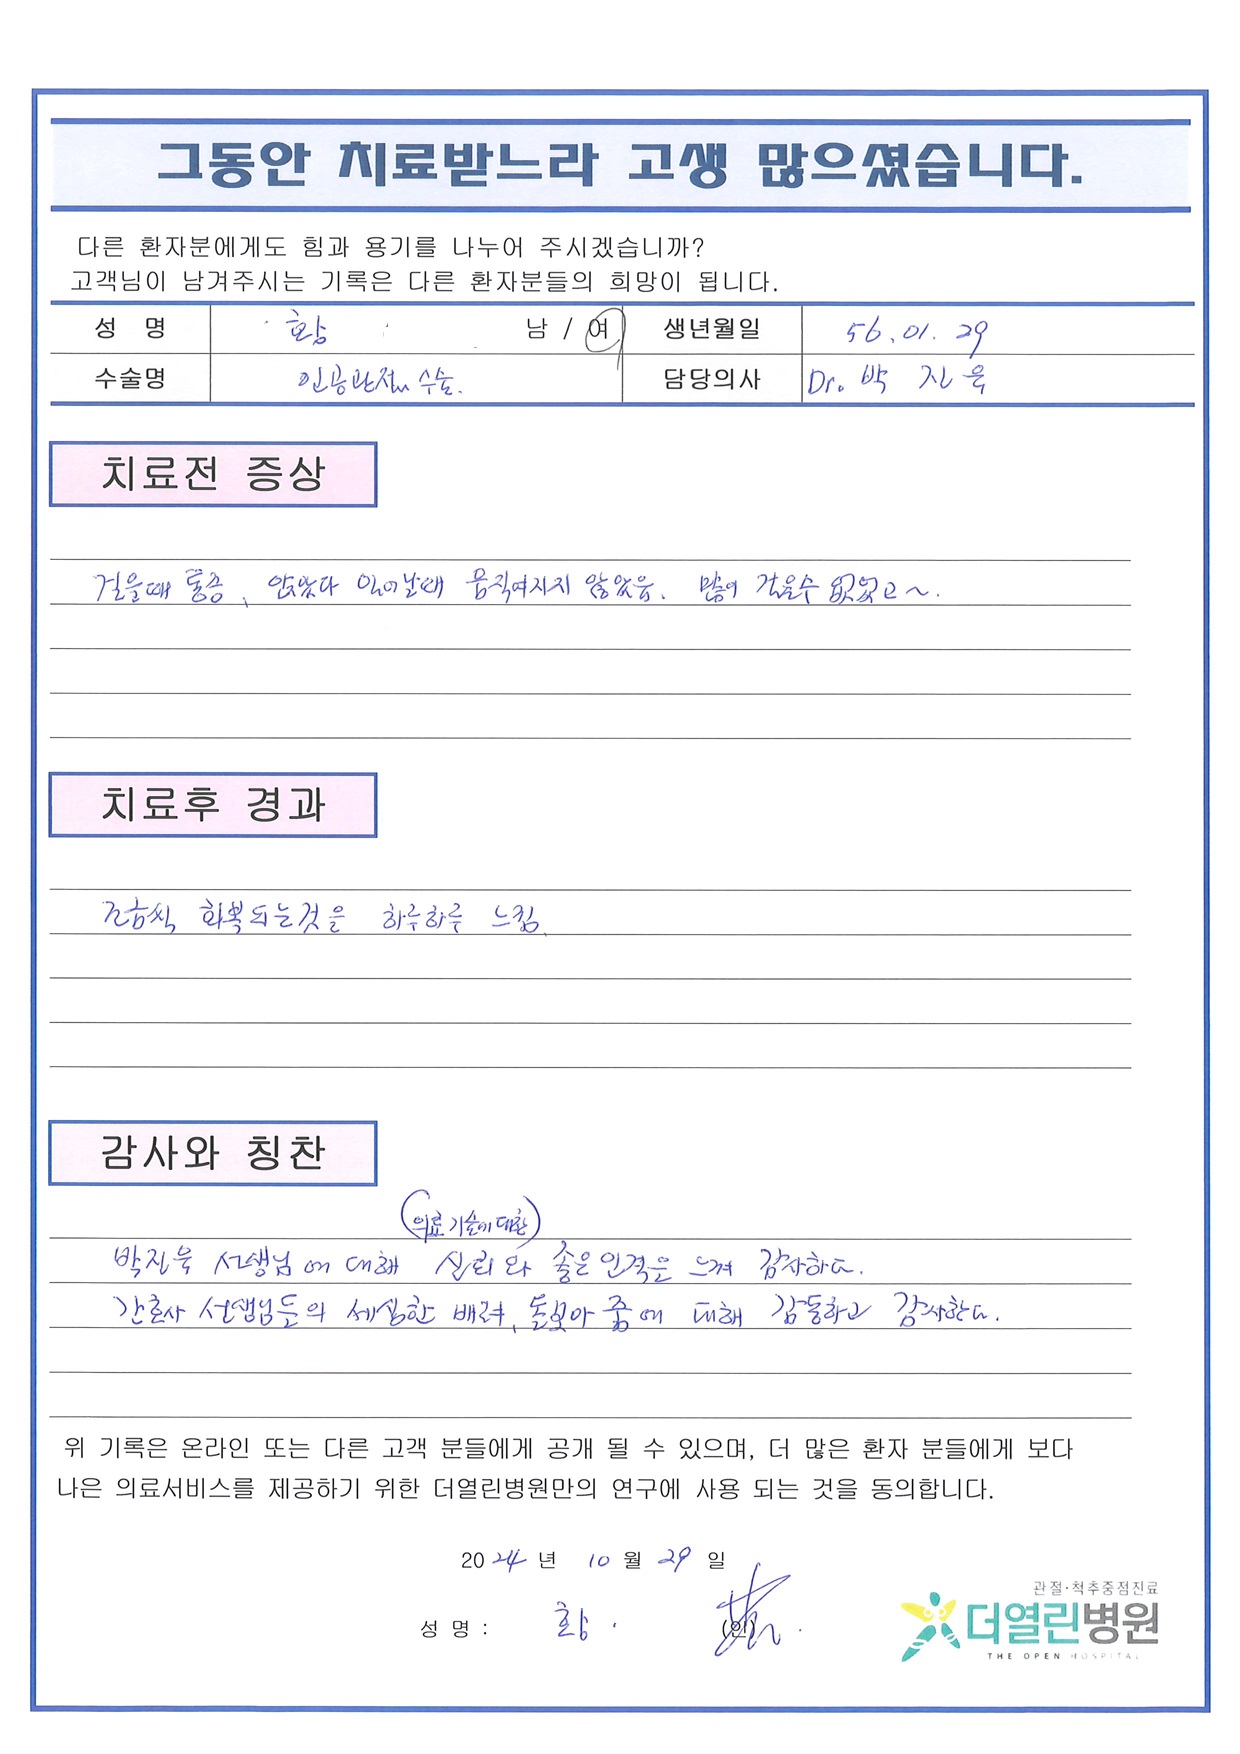 그동안 치료받느라 고생 많으셨습니다.
다른 환자분에게도 힘과 용기를 나누어 주시겠습니까?
고객님이 남겨주시는 기록은 다른 환자분들의 희망이 됩니다.
성 명 황 남 / 여 생년월일 56.01.29
수술명 인공관절 수술. 담당의사 Dr. 박 진욱
치료전 증상
걸을때 통증, 앉았다 일어날때 움직여지지 않았음. 많이 걸을수 없었고~.
치료후 경과
조금씩 회복되는것을 하루하루 느낌.
감사와 칭찬
(의료 기술에 대한)
박진욱 선생님에 대해 신뢰와 좋은 인격은 느껴 감사하다.
간호사 선생님들의 세심한 배려, 돌보아 줌에 대해 감동하고 감사한다.
위 기록은 온라인 또는 다른 고객 분들에게 공개 될 수 있으며, 더 많은 환자 분들에게 보다
나은 의료서비스를 제공하기 위한 더열린병원만의 연구에 사용 되는 것을 동의합니다.
2024 년 10 월 29 일
성 명 : 황 (인)
관절·척추중점진료
더열린병원
THE OPEN HOSPITAL